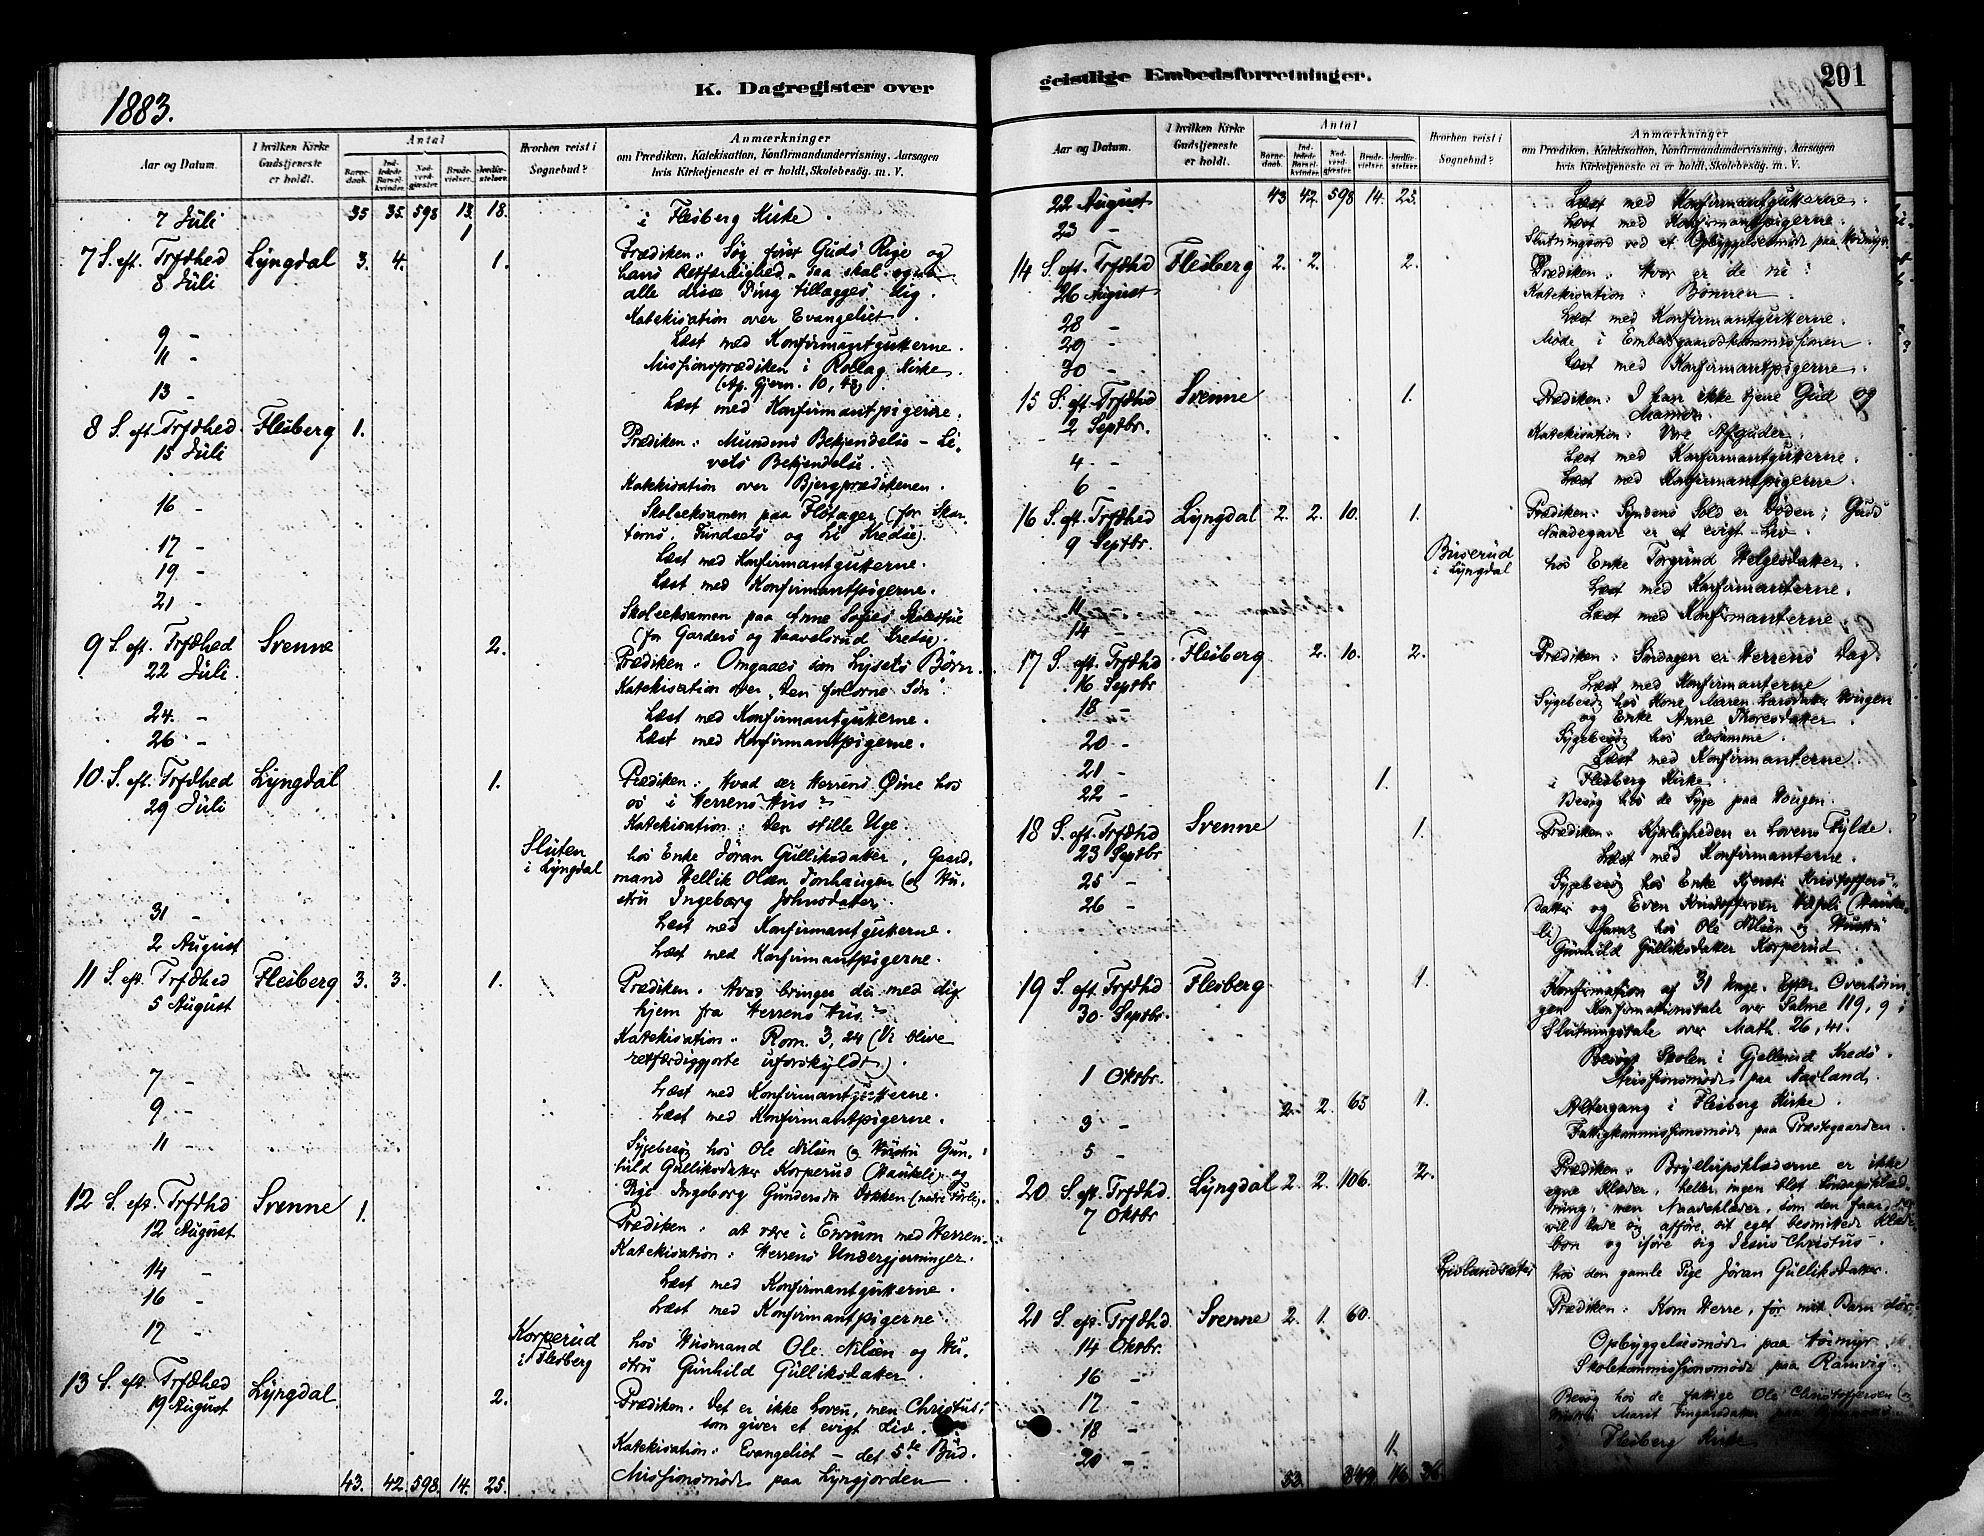 1883.
K. Dagregister over
Aar og Datum.
I hvilken Kirke Gudstjeneste er holdt.
Antal
Barnedaab.
Indledede Barselkvinder.
Nadverdgjæster.
Brudevielser.
Jordfæstelser.
Hvorhen reist i Sognebud?
Anmærkninger
om Prædiken, Katekisation, Konfirmandundervisning, Aarsagen
hvis Kirketjeneste ei er holdt, Skolebesøg, m. V.
7 Juli 35 35. 598 13. 18. i Flesberg Kirke.
1
7 S. eft. Trfdhed Lyngdal 3. 4. 1. Prædiken: Søg først Guds Rige og
8 Juli hans Retfærdighed, saa skal og
alle disse Ting tillægges dig.
Katekisation over Evangeliet.
9 - Læst med Konfirmantgutterne.
11 - Missionsprædiken i Rollag Kirke
(Ap. Gjern. 10, 43)
13 - Læst med Konfirmantpigerne.
8 S. eft. Trfdhed Flesberg 1. Prædiken: Mundens Bekjendelse - Li-
15 Juli vets Bekjendelse.
Katekisation over Bjergprædikenen.
16 - Skoleeksamen paa Flotager (for
og Li Kreds).
17 - Læst med Konfirmantgutterne.
19 - Læst med Konfirmantpigerne.
21 - Skoleeksamen paa Anne Sofies Skolestue
(for Garders og Kreds).
9 S. eft. Trfdhed Svenne 2. Prædiken: Omgaaes som Lysets Børn.
22 Juli Katekisation over "Den forlorne Søn"
24 - Læst med Konfirmantgutterne.
26 - Læst med Konfirmantpigerne.
10 S. eft. Trfdhed Lyngdal 1. Prædiken: Hvad ser Herrens Øine hos
29 Juli os i Herrens Hus?
Katekisation: Den stille Uge.
Sluten i Lyngdal hos Enke Jøran Gulliksdatter, Gaard-
mand Hellik Olsen Tonhaugen og Hu-
stru Ingeborg Johnsdatter.
31 - Læst med Konfirmantgutterne.
2 August Læst med Konfirmantpigerne.
11 S. eft. Trfdhed Flesberg 3. 3. 1. Prædiken: Hvad bringer du med dig
5 August hjem fra Herrens Hus?
Katekisation: Rom. 3, 24 (Vi blive
retfærdiggjorte uforskyldt).
7 - Læst med Konfirmantgutterne.
9 - Læst med Konfirmantpigerne.
11 - Sygebesøg hos Ole Nilsen og Hustru Gun-
hild Gulliksdatter Korperud og
Pige Ingeborg
12 S. eft. Trfdhd Svenne 1. Prædiken: at være i Enrum med Herren.
12 August Katekisation: Herrens Undergjerninger.
14 - Læst med Konfirmantgutterne.
16 - Læst med Konfirmantpigerne.
17 - Korperud i Flesberg hos Husmand Ole Nilsen og Hu-
stru Gunhild Gulliksdatter.
13 S. eft. Trfdhed Lyngdal 2. Prædiken: Det er ikke Loven, men Christus
19 August som giver et evigt Liv.
Katekisation: Evangeliet - det 5te Bud.
43. 42 598. 14. 25. Missionsmøde paa Lyngjorden
geistlige Embedsforretninger.
201
Aar og Datum.
I hvilken Kirke Gudstjeneste er holdt.
Antal
Barnedaab.
Indledede Barselkvinder.
Nadverdgjæster.
Brudevielser.
Jordfæstelser.
Hvorhen reist i Sognebud?
Anmærkninger
om Prædiken, Katekisation, Konfirmandundervisning, Aarsagen
hvis Kirketjeneste ei er holdt, Skolebesøg, m. V.
22 August 43 42. 598 14. 25. Læst med Konfirmantgutterne.
23 - Læst med Konfirmantpigerne.
Slutningsord ved et Opbyggelsesmøde paa
14 S. eft. Trfdhd Flesberg 2. 2. 2. Prædiken: Hvor er de ni?
26 August Katekisation: Bønnen.
28 - Læst med Konfirmantgutterne.
29 - Møde i Embedsgaardskommissionen.
30 - Læst med Konfirmantpigerne.
15 S. eft. Trfdhd Svenne 1. Prædiken: I kan ikke tjene Gud og
2 Septbr. Mamon.
Katekisation: Vore Afguder.
4 - Læst med Konfirmantgutterne.
6 - Læst med Konfirmantpigerne.
16 S. eft. Trfdhed Lyngdal 2. 2. 10. 1. Prædiken: Syndens Sold er Døden; Guds
9 Septbr. Naadegave er et evigt Liv
Buserud i Lyngdal hos Enke Torgund Helgesdatter.
11 - Læst med Konfirmanterne.
14 - Læst med Konfirmanterne
17 S. eft. Trfdhd Flesberg 2. 10. 2. Prædiken: Søndagen er Herrens Dag.
16 Septbr Læst med Konfirmanterne
18 - Sygebesøg hos Kone Maren Larsdatter Hougen
og Enke Anne Thoresdatter.
20 - Sygebesøg hos desamme.
21 - Læst med Konfirmanterne.
22 - 1. i Flesberg Kirke.
Besøg hos de Syge paa Hougen.
18 S. eft. Trfdhd Svenne 1. Prædiken: Kjærligheden er Lovens Fylde.
23 Septbr. Læst med Konfirmanterne.
25 - Sygebesøg hos Enke Kjersti Kristoffers-
26 - datter og Even Kristoffersen
samt hos Ole Nilsen og Hustru
Gunhild Gulliksdatter Korperud.
19 S. eft. Trfdhd Flesberg 1. Konfirmation af 31 Unge. Efter Overhørin-
30 Septbr. gen Konfirmationstale over Salme 119, 9;
Slutningstale over Math. 26, 41.
1 Oktbr. Besøgt Skolen i Gjellerud Kreds.
Missionsmøde paa Aasland.
3 - 2. 2 65 1. Altergang i Flesberg Kirke.
5 - Fattigkommissionsmøde paa Præstegaarden.
20 S. eft. Trfdhd. Lyngdal 2. 2. 106. 2. Prædiken: Bryllupsklæderne er ikke
7 Oktbr egne Klæder, heller ingen blot Søndagsklæd-
ning, men Naadeklæder, som den faar, der
vil lade sig afføre sit eget besmittede Klæde-
bon og iføre sig Jesus Christus.
hos den gamle Pige Jøran Gulliksdatter.
21 S. eft. Trfdhd Svenne 2. 1. 60. Prædiken: Kom Herre, før mit Barn dør.
14 Oktbr. Opbyggelsesmøde paa
16 - Skolekommissionsmøde paa Ramvig.
17 - Besøg hos de fattige Ole Christoffersen og
18 - Hustru Marit
20 - 1. Flesberg Kirke
53. 849 16 36